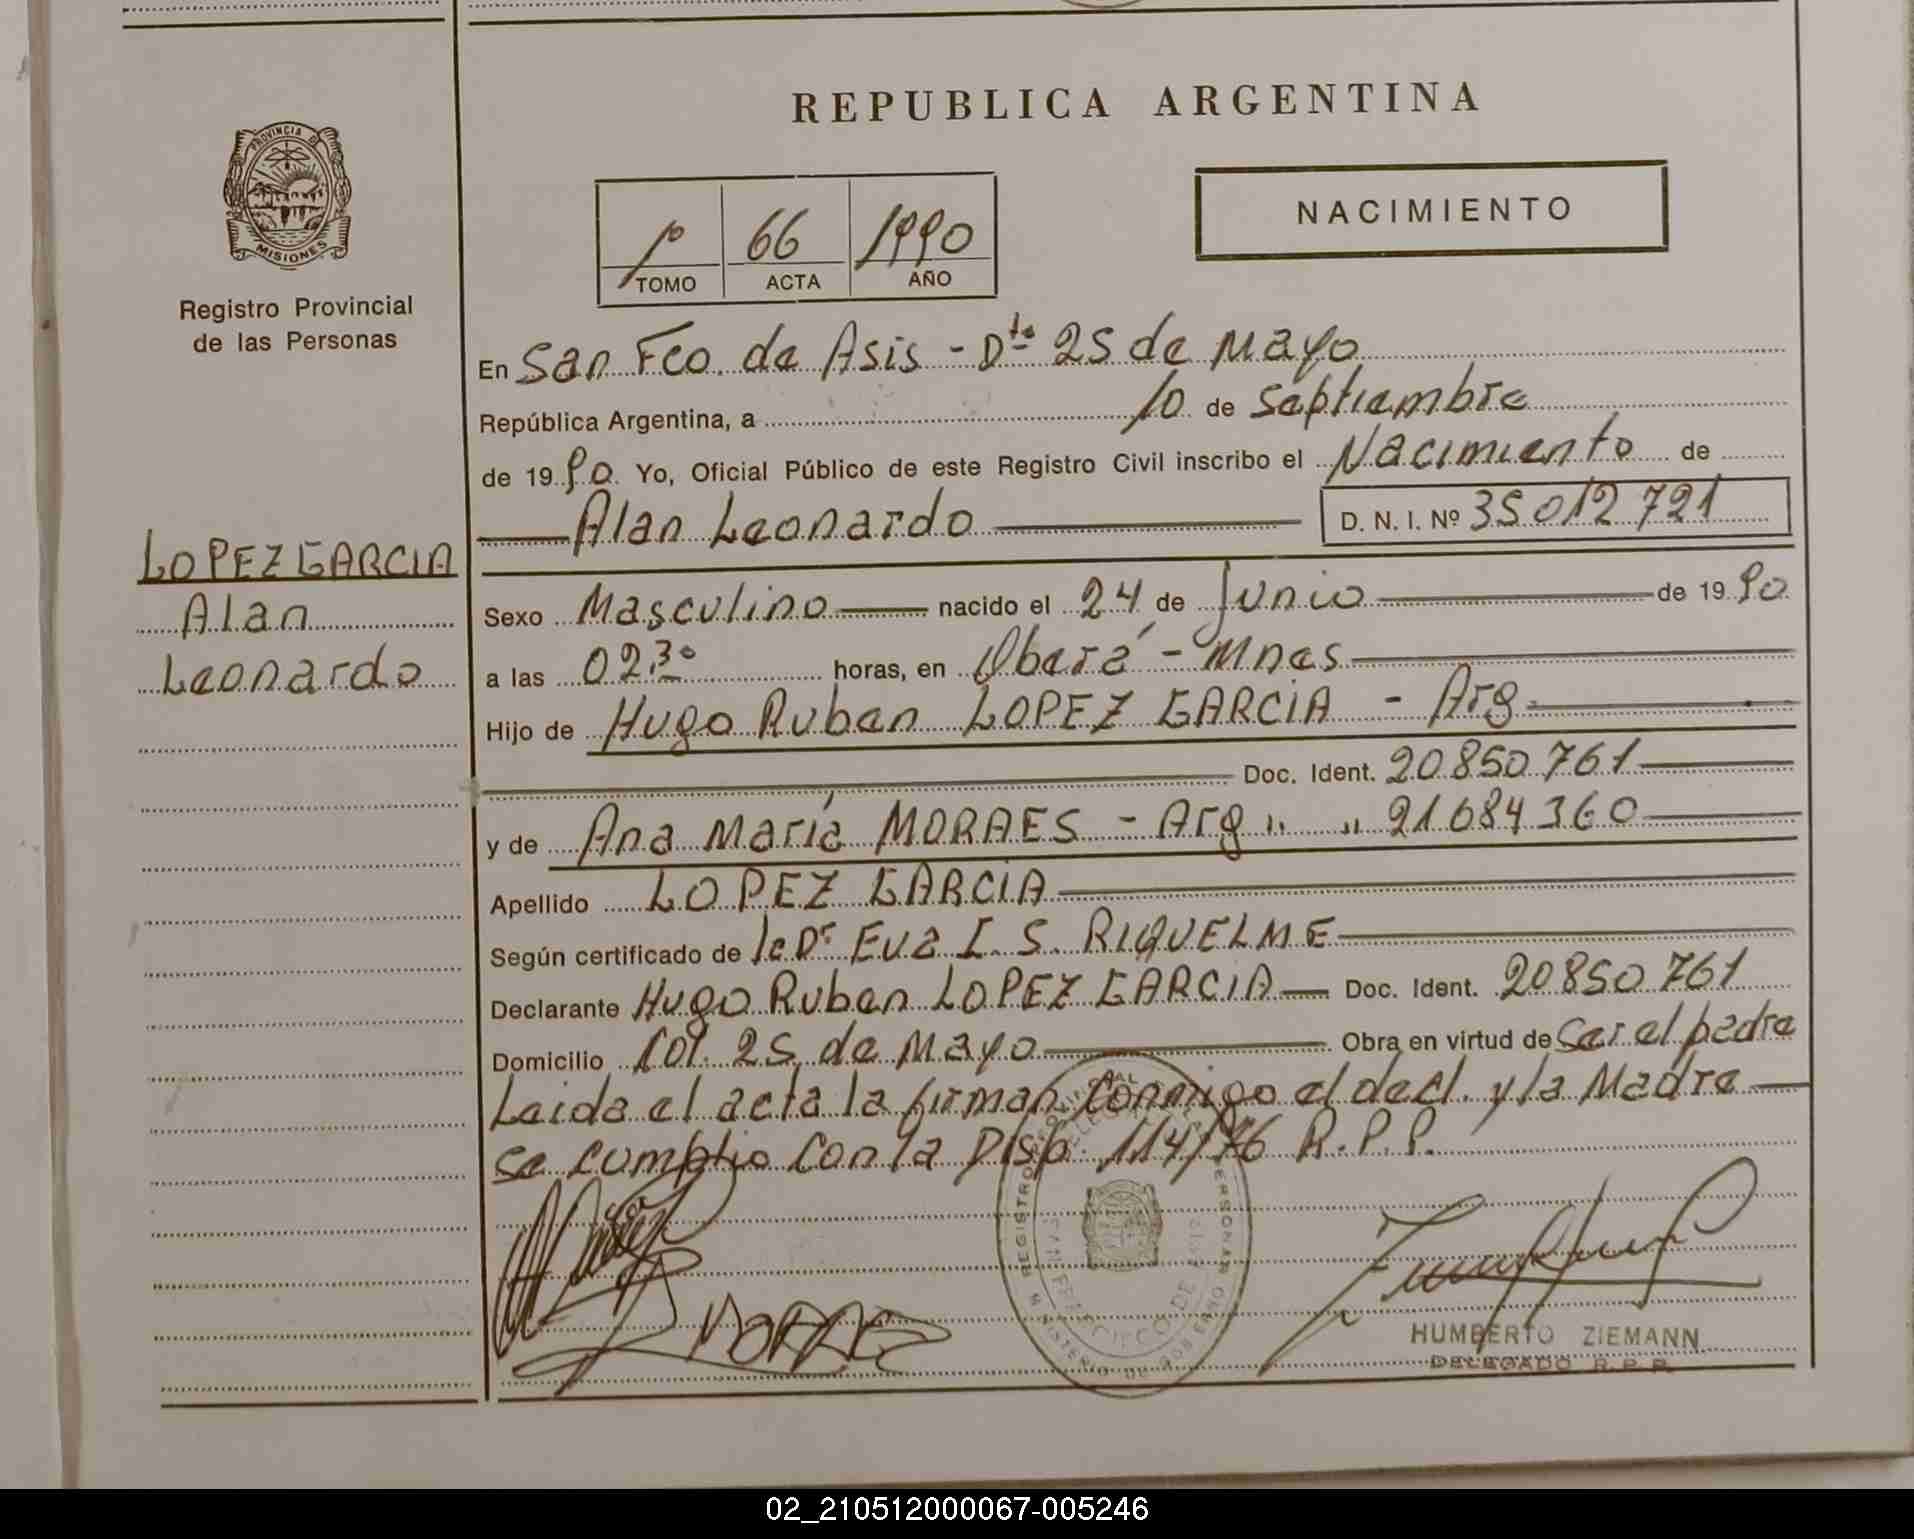 REPUBLICA ARGENTINA
PROVINCIA DE
MISIONES
Registro Provincial
de las Personas
1º 66 1990
TOMO ACTA AÑO
NACIMIENTO
En San Fco. de Asis - Dto 25 de Mayo
República Argentina, a 10 de Septiembre
de 1990 Yo, Oficial Público de este Registro Civil inscribo el Nacimiento de
Alan Leonardo D. N. I. Nº 35012721
LOPEZ GARCIA
Alan
Leonardo
Sexo Masculino nacido el 24 de Junio de 1990
a las 02,30 horas, en Oberá - Mnes
Hijo de Hugo Ruben LOPEZ GARCIA - Arg.
Doc. Ident. 20850761
y de Ana María MORAES - Arg " " 21684360
Apellido LOPEZ GARCIA
Según certificado de la Dr Eva I. S. RIQUELME
Declarante Hugo Ruben LOPEZ GARCIA Doc. Ident. 20850761
Domicilio Col. 25 de Mayo Obra en virtud de Ser el padre
Leida el acta la firman Conmigo el decl. y la Madre
se cumplio Con la Disp. 114/76 R.P.P.
MORAES
HUMBERTO ZIEMANN
DELEGADO R.P.P.
02_210512000067-005246